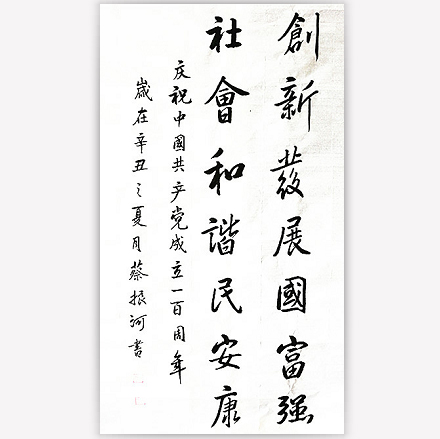 創新發展國富强
社會和谐民安康
庆祝中國共产党成立一百周年
歲在辛丑之夏月蔡振河書